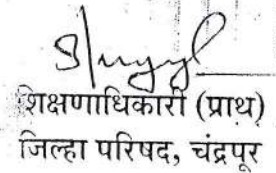 शिक्षणाधिकारी (प्राथ)
जिल्हा परिषद, चंद्रपूर